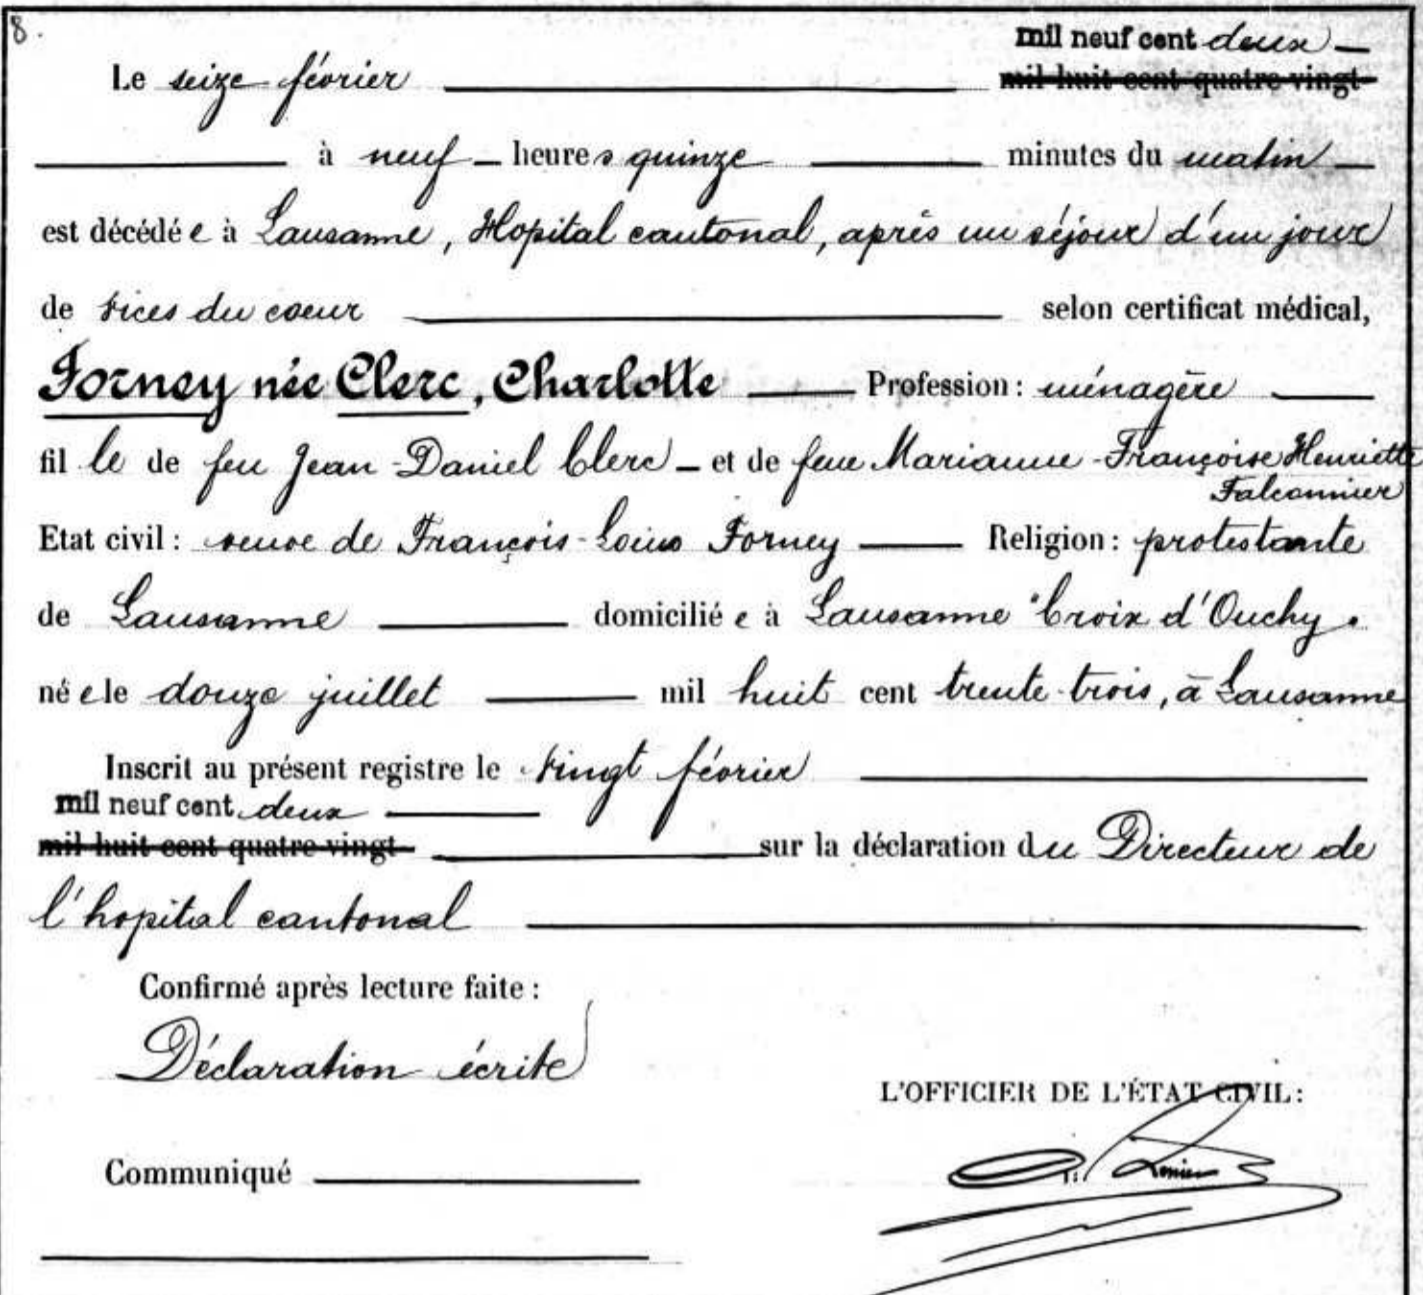 8.
mil neuf cent deux
Le seize février mil huit cent quatre vingt
à neuf heures quinze minutes du matin
est décédée à Lausanne, Hopital cantonal, après un séjour d'un jour
de vices du coeur selon certificat médical,
Forney née Clerc, Charlotte Profession: ménagère
fille de feu Jean-Daniel Clerc et de feue Marianne-Françoise Henriette
Falconnier
Etat civil: veuve de François-Louis Forney Religion: protestante
de Lausanne domiciliée à Lausanne "Croix d'Ouchy.
née le douze juillet mil huit cent trente-trois, à Lausanne
Inscrit au présent registre le vingt février
mil neuf cent deux
mil huit cent quatre vingt sur la déclaration du Directeur de
l'hopital cantonal
Confirmé après lecture faite:
Déclaration écrite
L'OFFICIER DE L'ÉTAT CIVIL:
Communiqué